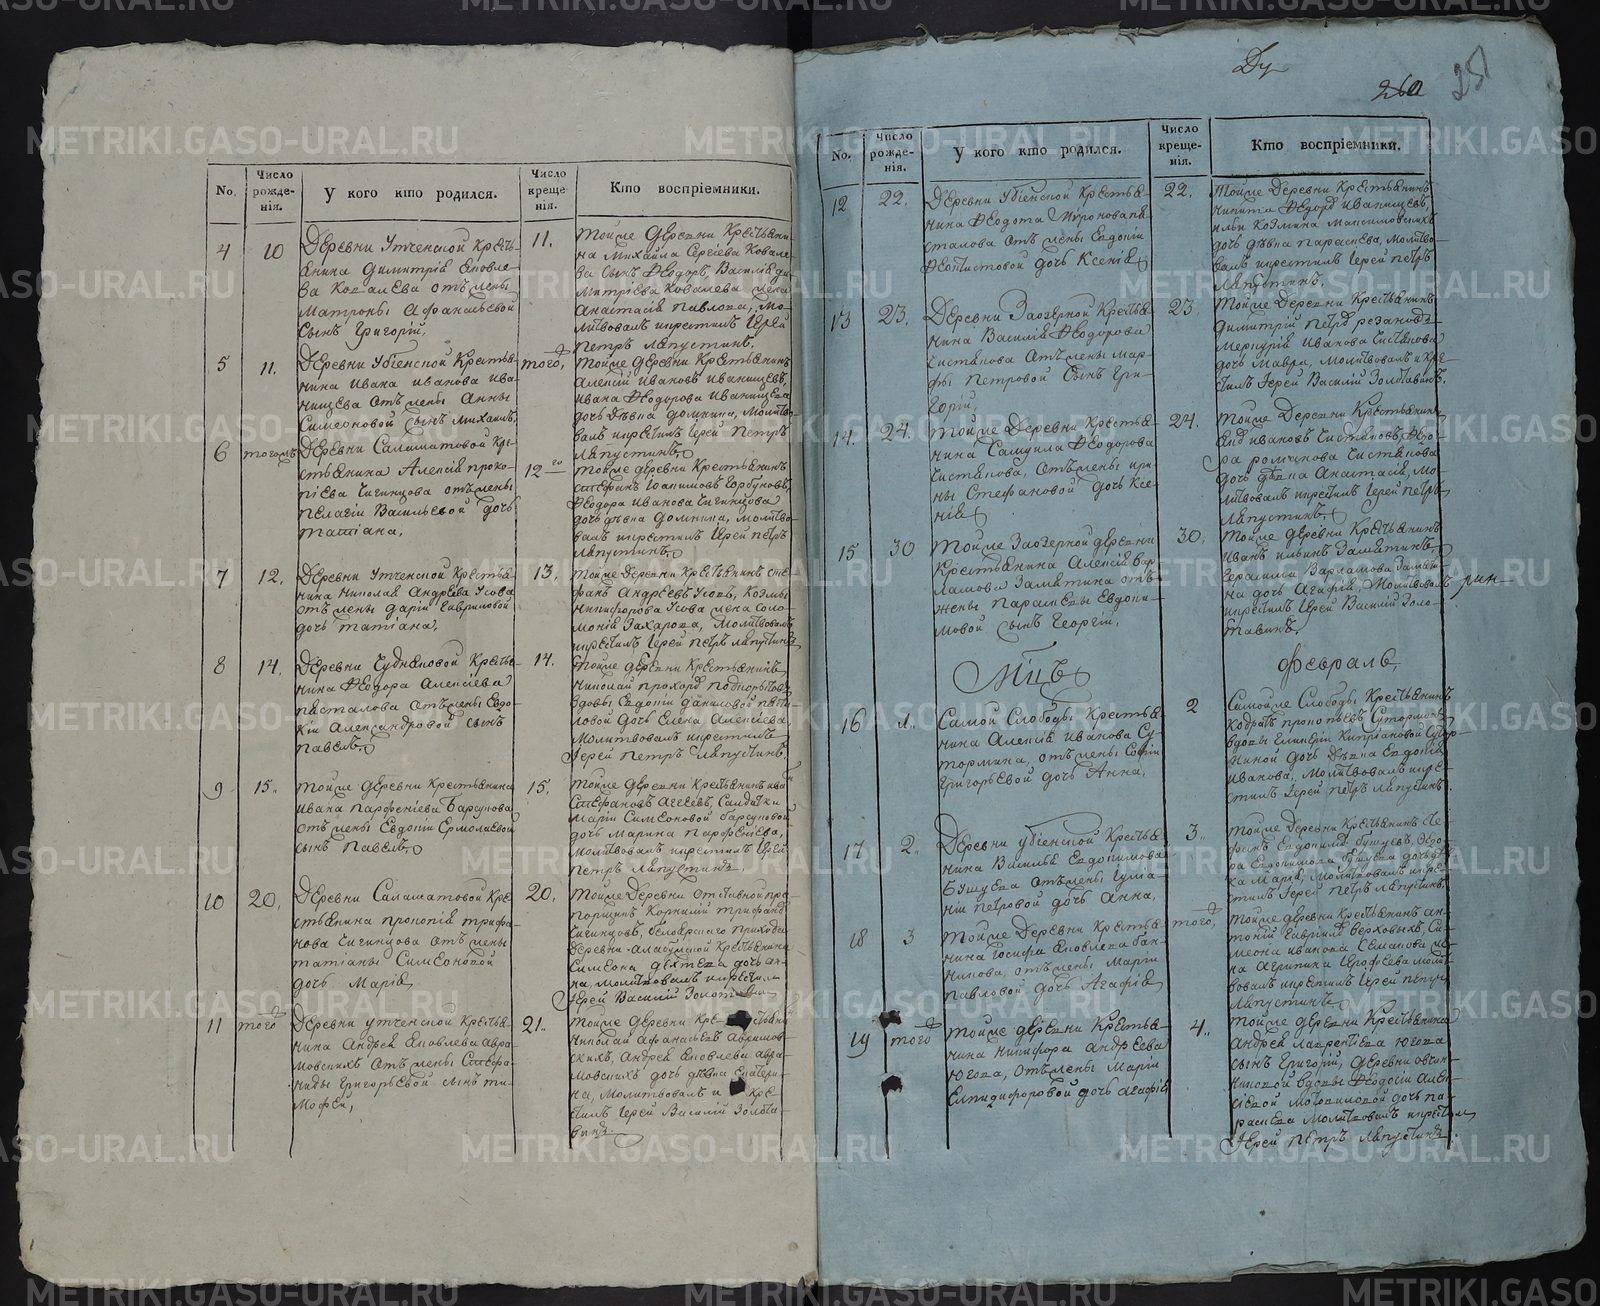 No.
Число рожденія.
У кого кто родился.
Число крещенія.
Кто воспріемники.
4
10
Деревни Утченской Кресть-
янина Димитрія Яковле-
ва Ковалева отъ жены
Матроны Афанасьевой
сынъ Григорій,
11.
Тойже деревни Крестьяни-
на Михайла Сергѣева Ковале-
ва сынъ Ѳеодоръ, Василія Ди-
митріева Ковалева жена
Анастасія Павлова, мо-
литвовалъ икрестилъ Іерей
Петръ Ляпустинъ.
5
11.
Деревни Убіенской Крестья-
нина Ивана Иванова Ива-
нищева отъ жены Анны
Симеоновой сынъ Михаилъ,
того,
Тойже деревни Крестьянинъ
Алексій Ивановъ Иванищевъ,
Ивана Ѳеодорова Иванищева
дочь дѣвка Домника, молитво-
валъ икрестилъ Іерей Петръ
Ляпустинъ
6
тогожъ
Деревни Саламатовой Кре-
стьянина Алексія Проко-
піева Чигинцова отъ жены
Пелагіи Васильевой дочь
Татіана,
12го
Тойже деревни Крестьянинъ
Стефанъ Іоакимовъ Горбуновъ,
Ѳеодора Иванова Чигинцова
дочь дѣвка Домника, молитво-
валъ икрестилъ Іерей Петръ
Ляпустинъ
7
12.
Деревни Утченской Крестья-
нина Николая Андреева Усова
отъ жены Даріи Гавриловой
дочь Татіана,
13.
Тойже деревни Крестьянинъ Сте-
фанъ Андреевъ Усовъ, Козьмы
Никифорова Усова жена Соло-
монія Захарова, молитвовалъ
икрестилъ Іерей Петръ Ляпустинъ
8
14.
Деревни Чудняковой Крестья-
нина Ѳеодора Алексіева
отъ жены Евдо-
кіи Александровой сынъ
Павелъ
14.
Тойже деревни Крестьянинъ
Николай Прохоровъ
вдовы Евдокіи Даниловой
дочь Елена Алексіева,
молитвовалъ икрестилъ
Іерей Петръ Ляпустинъ
9
15.
Тойже деревни Крестьянина
Ивана Парфеніева Барсукова
отъ жены Евдокіи Ермолаевой
сынъ Павелъ
15.
Тойже деревни Крестьянинъ
Стефановъ Агеевъ, Солдатки
Маріи Симеоновой Барсуковой
дочь Марина Парфеніева,
молитвовалъ икрестилъ Іерей
Петръ Ляпустинъ.
10
20.
Деревни Саламатовой Кре-
стьянина Прокопія Трифа-
нова Чигинцова отъ жены
Татіаны Симеоновой
дочь Марія
20.
Тойже деревни отставной пра-
порщикъ Корнилій Трифановъ
Чигинцовъ, Белоярского прихода
деревни Крестьянина
Симеона дочь Ан-
на, молитвовалъ икрестилъ
Іерей Василій Золотавинъ
11
того
Деревни Утченской Крестья-
нина Андрея Яковлева Авра-
мовскихъ отъ жены Стефа-
ниды Григорьевой сынъ Ти-
мофей,
21.
Тойже деревни Крестьянинъ
Николай Афанасьевъ Аврамов-
скихъ, Андрея Яковлева Авра-
мовскихъ дочь дѣвка Екатери-
на, молитвовалъ и кре-
стилъ Іерей Василій Золота-
винъ.
260
251
No.
Число рожденія.
У кого кто родился.
Число крещенія.
Кто воспріемники.
12
22.
Деревни Убіенской Крестья-
нина Ѳеодота Миронова
отъ жены Евдокіи
Ѳеоктистовой дочь Ксенія
22.
Тойже деревни Крестьянинъ
Никита Ѳедоровъ Иванищевъ,
Ильи Козмина Максимовскихъ
дочь дѣвка Параскева, молитво-
валъ икрестилъ Іерей Петръ
Ляпустинъ.
13
23.
Деревни Заозерной Крестья-
нина Василія Ѳеодорова
Чистякова отъ жены Мар-
фы Петровой сынъ Гри-
горій,
23.
Тойже деревни Крестьянинъ
Димитрій Петровъ Резановъ
Меркурія Иванова Чистякова
дочь Мавра, молитвовалъ икре-
стилъ Іерей Василій Золотавинъ.
14.
24.
Тойже деревни Крестья-
нина Самуила Ѳеодорова
Чистякова, отъ жены Ири-
ны Стефановой дочь Ксе-
нія
24.
Тойже деревни Крестьянинъ
Ивановъ Чистяковъ, Ѳедо-
ра Романова Чистякова
дочь дѣвка Анастасія, мо-
литвовалъ икрестилъ Іерей Петръ
Ляпустинъ
15
30
Тойже Заозерной деревни
Крестьянина Алексія Вар-
ламова Замятина отъ
жены Параскевы Евдоки-
мовой сынъ Георгій,
30.
Тойже деревни Крестьянинъ
Иванъ Ильинъ Замятинъ,
Герасима Варламова Замяти-
на дочь Агафія, молитвовалъ
икрестилъ Іерей Василій Золо-
тавинъ.
Мцъ
Февраль
16
1.
Самой Слободы Крестья-
нина Алексія Иванова Су-
тормина, отъ жены Софіи
Григорьевой дочь Анна,
2
Самойже Слободы Крестьянинъ
Кодратъ Прокопьевъ Суторминъ
вдовы Гликеріи Кипріановой Сутор-
миной дочь дѣвка Евдокія
Иванова, молитвовалъ икре-
стилъ Іерей Петръ Ляпустинъ.
17
2.
Деревни Убіенской Крестья-
нина Василья Евдокимова
Бушуева отъ жены Іуліа-
ніи Петровой дочь Анна,
3.
Тойже деревни Крестьянинъ
Евдокимовъ Бушуевъ, Ѳедо-
ра Евдокимова Бушуева дочь дѣв-
ка Марія, молитвовалъ икре-
стилъ Іерей Петръ Ляпустинъ.
18
3
Тойже деревни Крестья-
нина Іосифа Яковлева Бан-
никова, отъ жены Маріи
Павловой дочь Агафія
того,
Тойже деревни Крестьянинъ Ан-
тоній Гавриловъ Верховыхъ, Си-
меона Иванова Семакова же-
на Агрипина Ерофеева молит-
вовалъ икрестилъ Іерей Петръ
Ляпустинъ
19
того
Тойже деревни Крестья-
нина Никифора Андреева
Югова, отъ жены Маріи
Елпидифоровой дочь Агафія
4.
Тойже деревни Крестьянина
Андрея Лаврентіева Югова
сынъ Григорій, деревни Овчин-
никовой вдовы Ѳеодосіи Алек-
сіевой дочь Па-
раскева молитвовалъ икрестилъ
Іерей Петръ Ляпустинъ.
METRIKI.GASO-URAL.RU